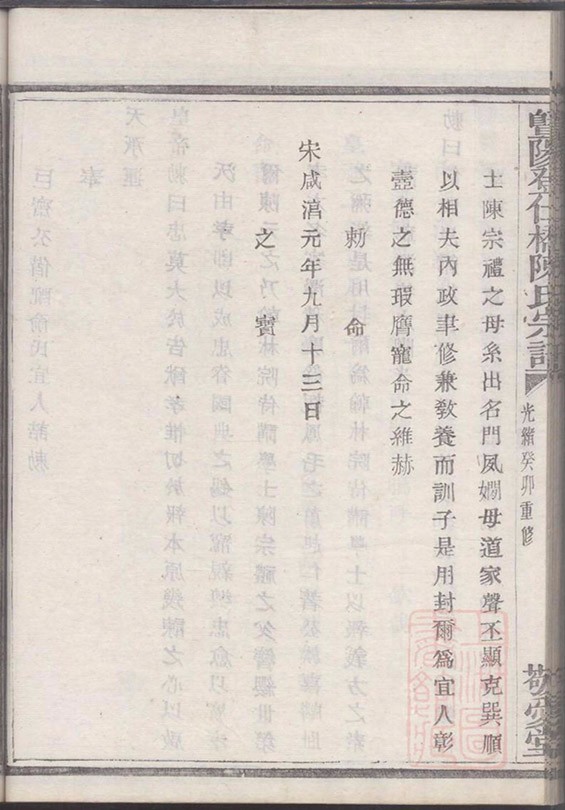 暨陽登仕橋陳氏宗譜
光緒癸卯重修
敬愛堂
士陳宗禮之母系出名門夙嫺母道家聲丕顯克巽順
以相夫內政聿修兼敎養而訓子是用封爾爲宜人彰
壼德之無瑕膺寵命之維赫
勅命
宋咸淳元年九月十三日
之寶